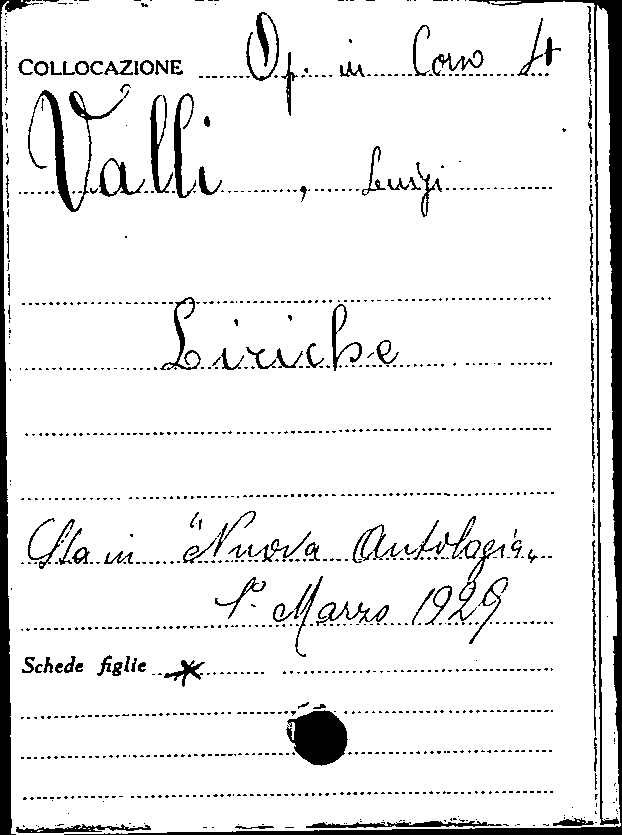 COLLOCAZIONE Op. in Corso 4
Valli, Luigi
Liriche
Sta in "Nuova Antologia"
1° Marzo 1929
Schede figlie